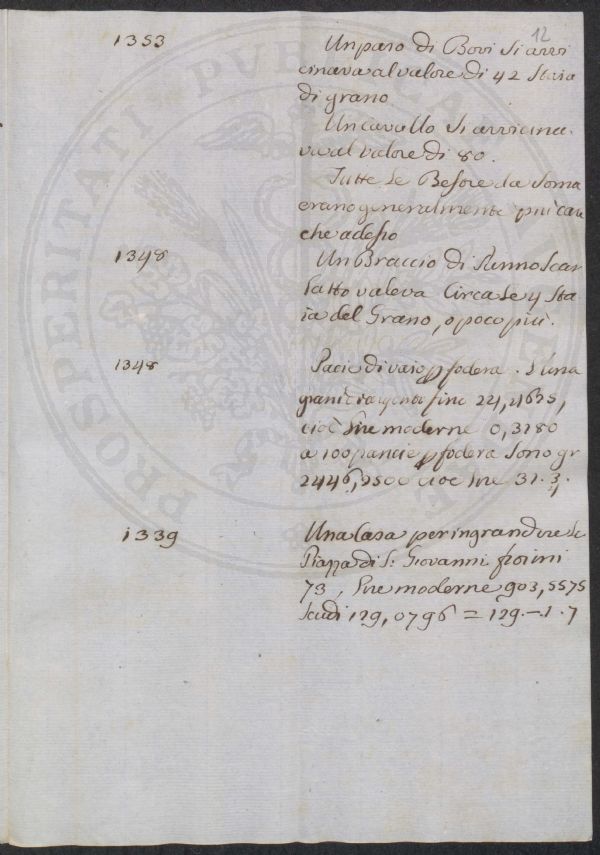 12
1353 Un paro di Bovi si avvi
cinava al valore di 42 Staia
di grano
Un Cavallo si avvicina
va al valore di 80.
Tutte le Bestie da Soma
erano generalmente più care
che adesso
1348 Un Braccio di Panno Scar
latto valeva Circa le 4 Sta
ia del Grano, o poco più.
1348 Pancie di vaio p fodera. L'una
grani d'argento fine 24,4625,
cioè Lire moderne 0,3180
a 100 pancie p fodera sono gr
2446,2500 cioè lire 31.
1339 Una Casa per ingrandire la
Piazza di S: Giovanni fiorini
73, Lire moderne 903,5575
Scudi 129,0796 = 129.-.1.7
PROSPERITATI PUBLICAE